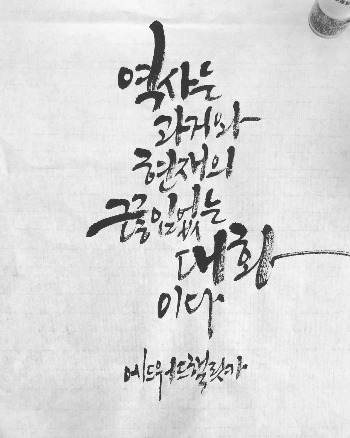 역사는
과거와
현재의
끊임없는
대화
이다
에드워드핼릿카